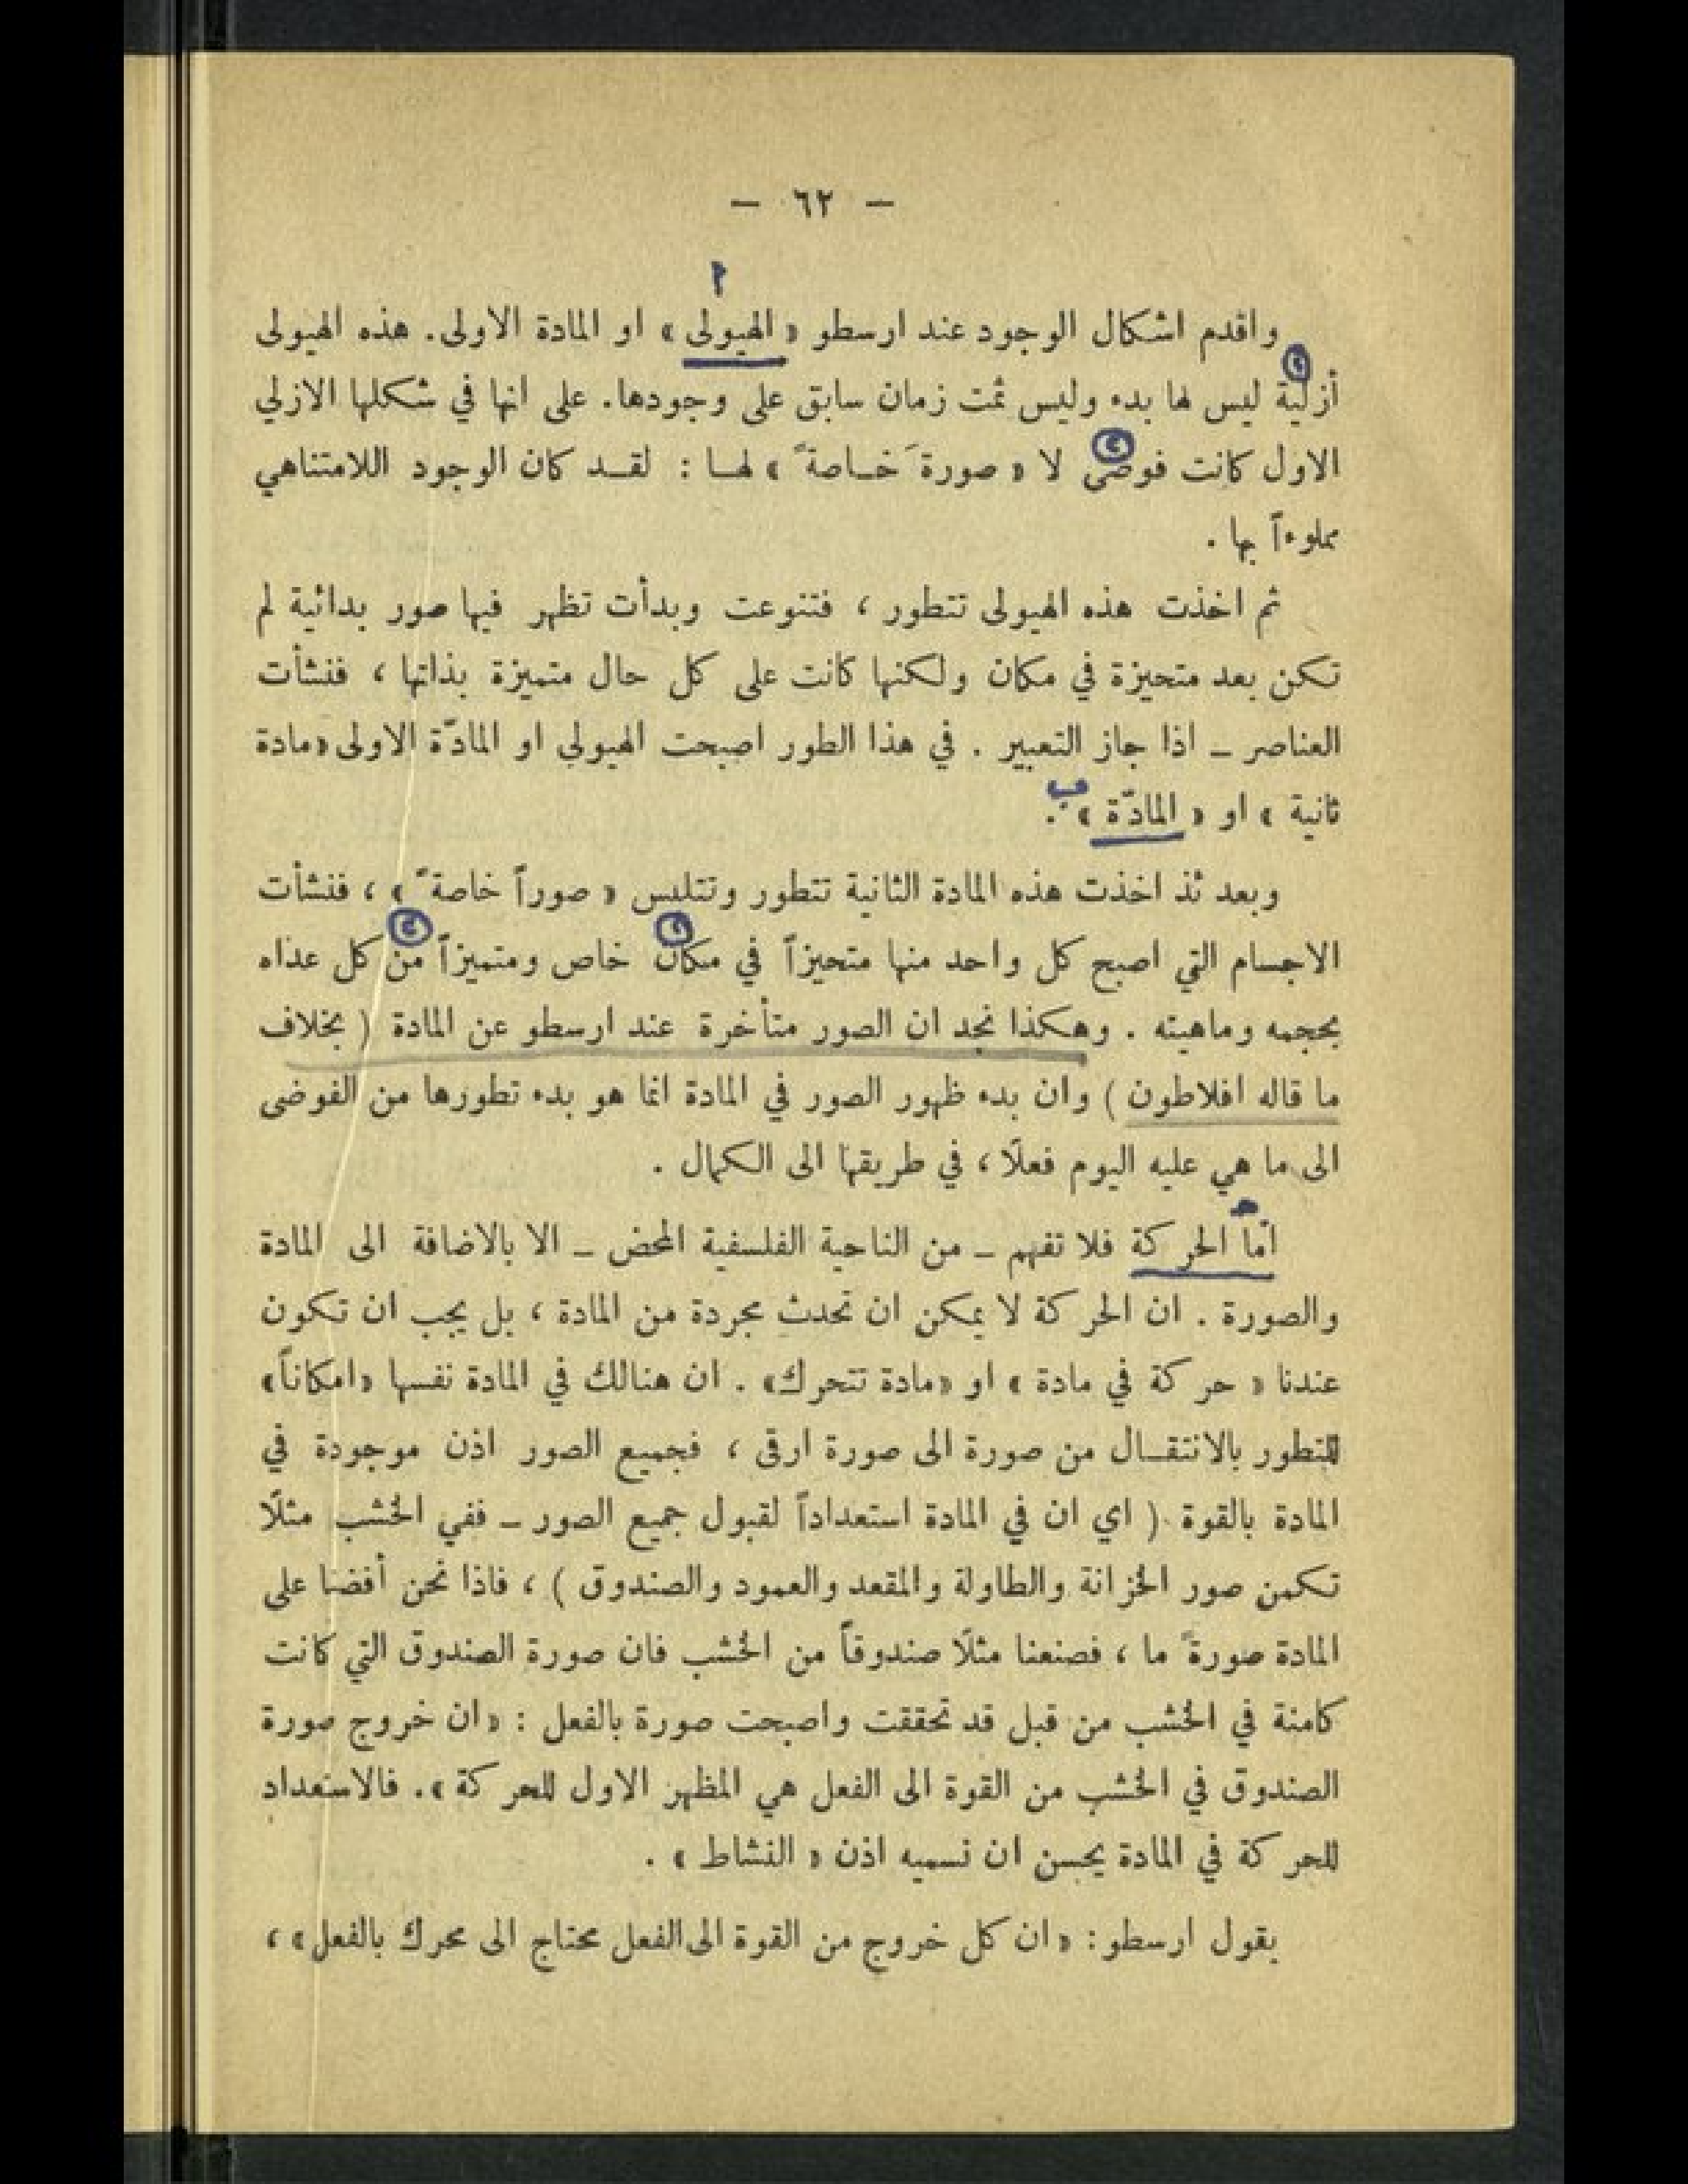 — ٦٢ —
أ
واقدم اشكال الوجود عند ارسطو « الهيولى » او المادة الاولى. هذه الهيولى
أزلية ليس لها بدء وليس ثمت زمان سابق على وجودها. على انها في شكلها الازلي
الاول كانت فوضى لا « صورةَ خـاصةً » لهـا : لقـد كان الوجود اللامتناهي
مملوءاً بها .
ثم اخذت هذه الهيولى تتطور ، فتنوعت وبدأت تظهر فيها صور بدائية لم
تكن بعد متحيزة في مكان ولكنها كانت على كل حال متميزة بذاتها ، فنشأت
العناصر ــ اذا جاز التعبير . في هذا الطور اصبحت الهيولي او المادّة الاولى «مادة
ثانية » او « المادّة » .
ب
وبعد ئذ اخذت هذه المادة الثانية تتطور وتتلبس « صوراً خاصةً » ، فنشأت
الاجسام التي اصبح كل واحد منها متحيزاً في مكان خاص ومتميزاً من كل عداه
بحجمه وماهيته . وهكذا نجد ان الصور متأخرة عند ارسطو عن المادة ( بخلاف
ما قاله افلاطون ) وان بدء ظهور الصور في المادة انما هو بدء تطورها من الفوضى
الى ما هي عليه اليوم فعلًا ، في طريقها الى الكمال .
امّا الحركة فلا تفهم ــ من الناحية الفلسفية المحض ــ الا بالاضافة الى المادة
والصورة . ان الحركة لا يمكن ان تحدث مجردة من المادة ، بل يجب ان تكون
عندنا « حركة في مادة » او «مادة تتحرك» . ان هنالك في المادة نفسها «امكاناً»
للتطور بالانتقـال من صورة الى صورة ارقى ، فجميع الصور اذن موجودة في
المادة بالقوة ( اي ان في المادة استعداداً لقبول جميع الصور ــ ففي الخشب مثلًا
تكمن صور الخزانة والطاولة والمقعد والعمود والصندوق ) ، فاذا نحن أفضنا على
المادة صورةً ما ، فصنعنا مثلًا صندوقاً من الخشب فان صورة الصندوق التي كانت
كامنة في الخشب من قبل قد تحققت واصبحت صورة بالفعل : «ان خروج صورة
الصندوق في الخشب من القوة الى الفعل هي المظهر الاول للحركة ». فالاستعداد
للحركة في المادة يحسن ان نسميه اذن « النشاط » .
يقول ارسطو : « ان كل خروج من القوة الى الفعل محتاج الى محرك بالفعل » ،